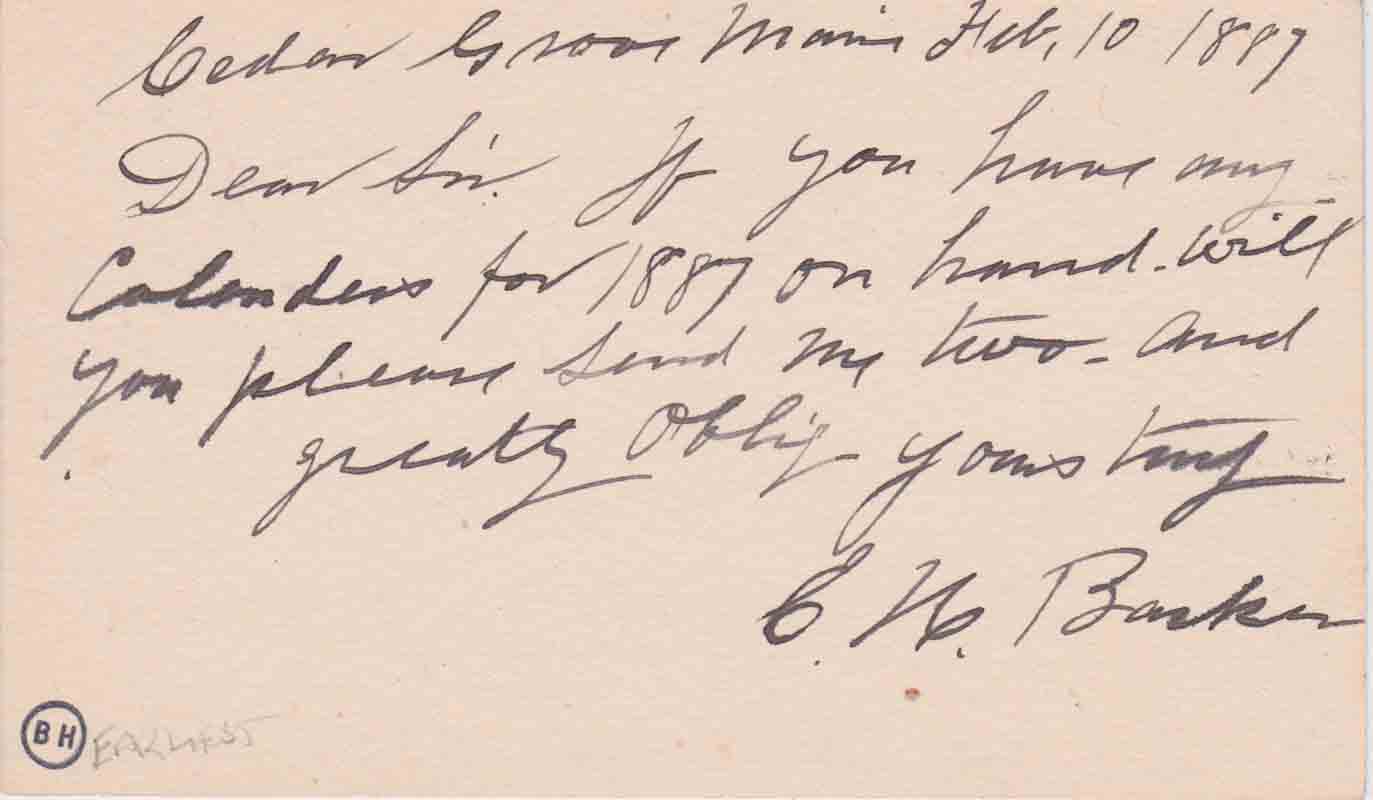 Cedar Grove Maine Feb, 10 1887
Dear Sir. If you have any
Calenders for 1887 on hand - will
you please send me two - and
greatly Oblig yours truly
C. H. Barker
BH EARLIEST